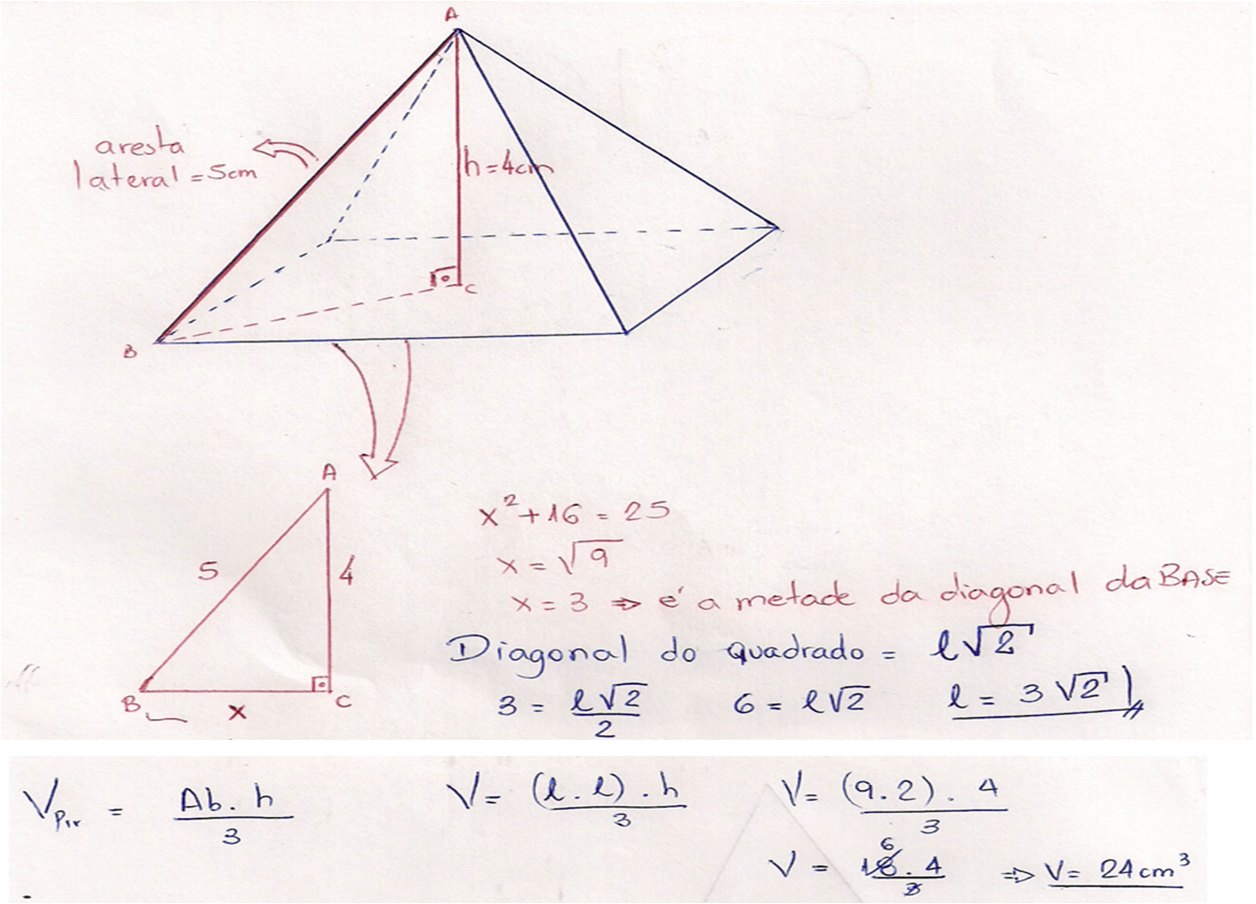 A
aresta
lateral = 5cm
h = 4cm
C
B
A
5
4
B
x
C
x² + 16 = 25
x = √9
x = 3 ⇒ é a metade da diagonal da BASE
Diagonal do quadrado = l√2
3 = l√2/2 6 = l√2 l = 3√2
V Pir = Ab . h / 3 V = (l . l) . h / 3 V = (9 . 2) . 4 / 3
6
V = 18 . 4 / 3 ⇒ V = 24 cm³